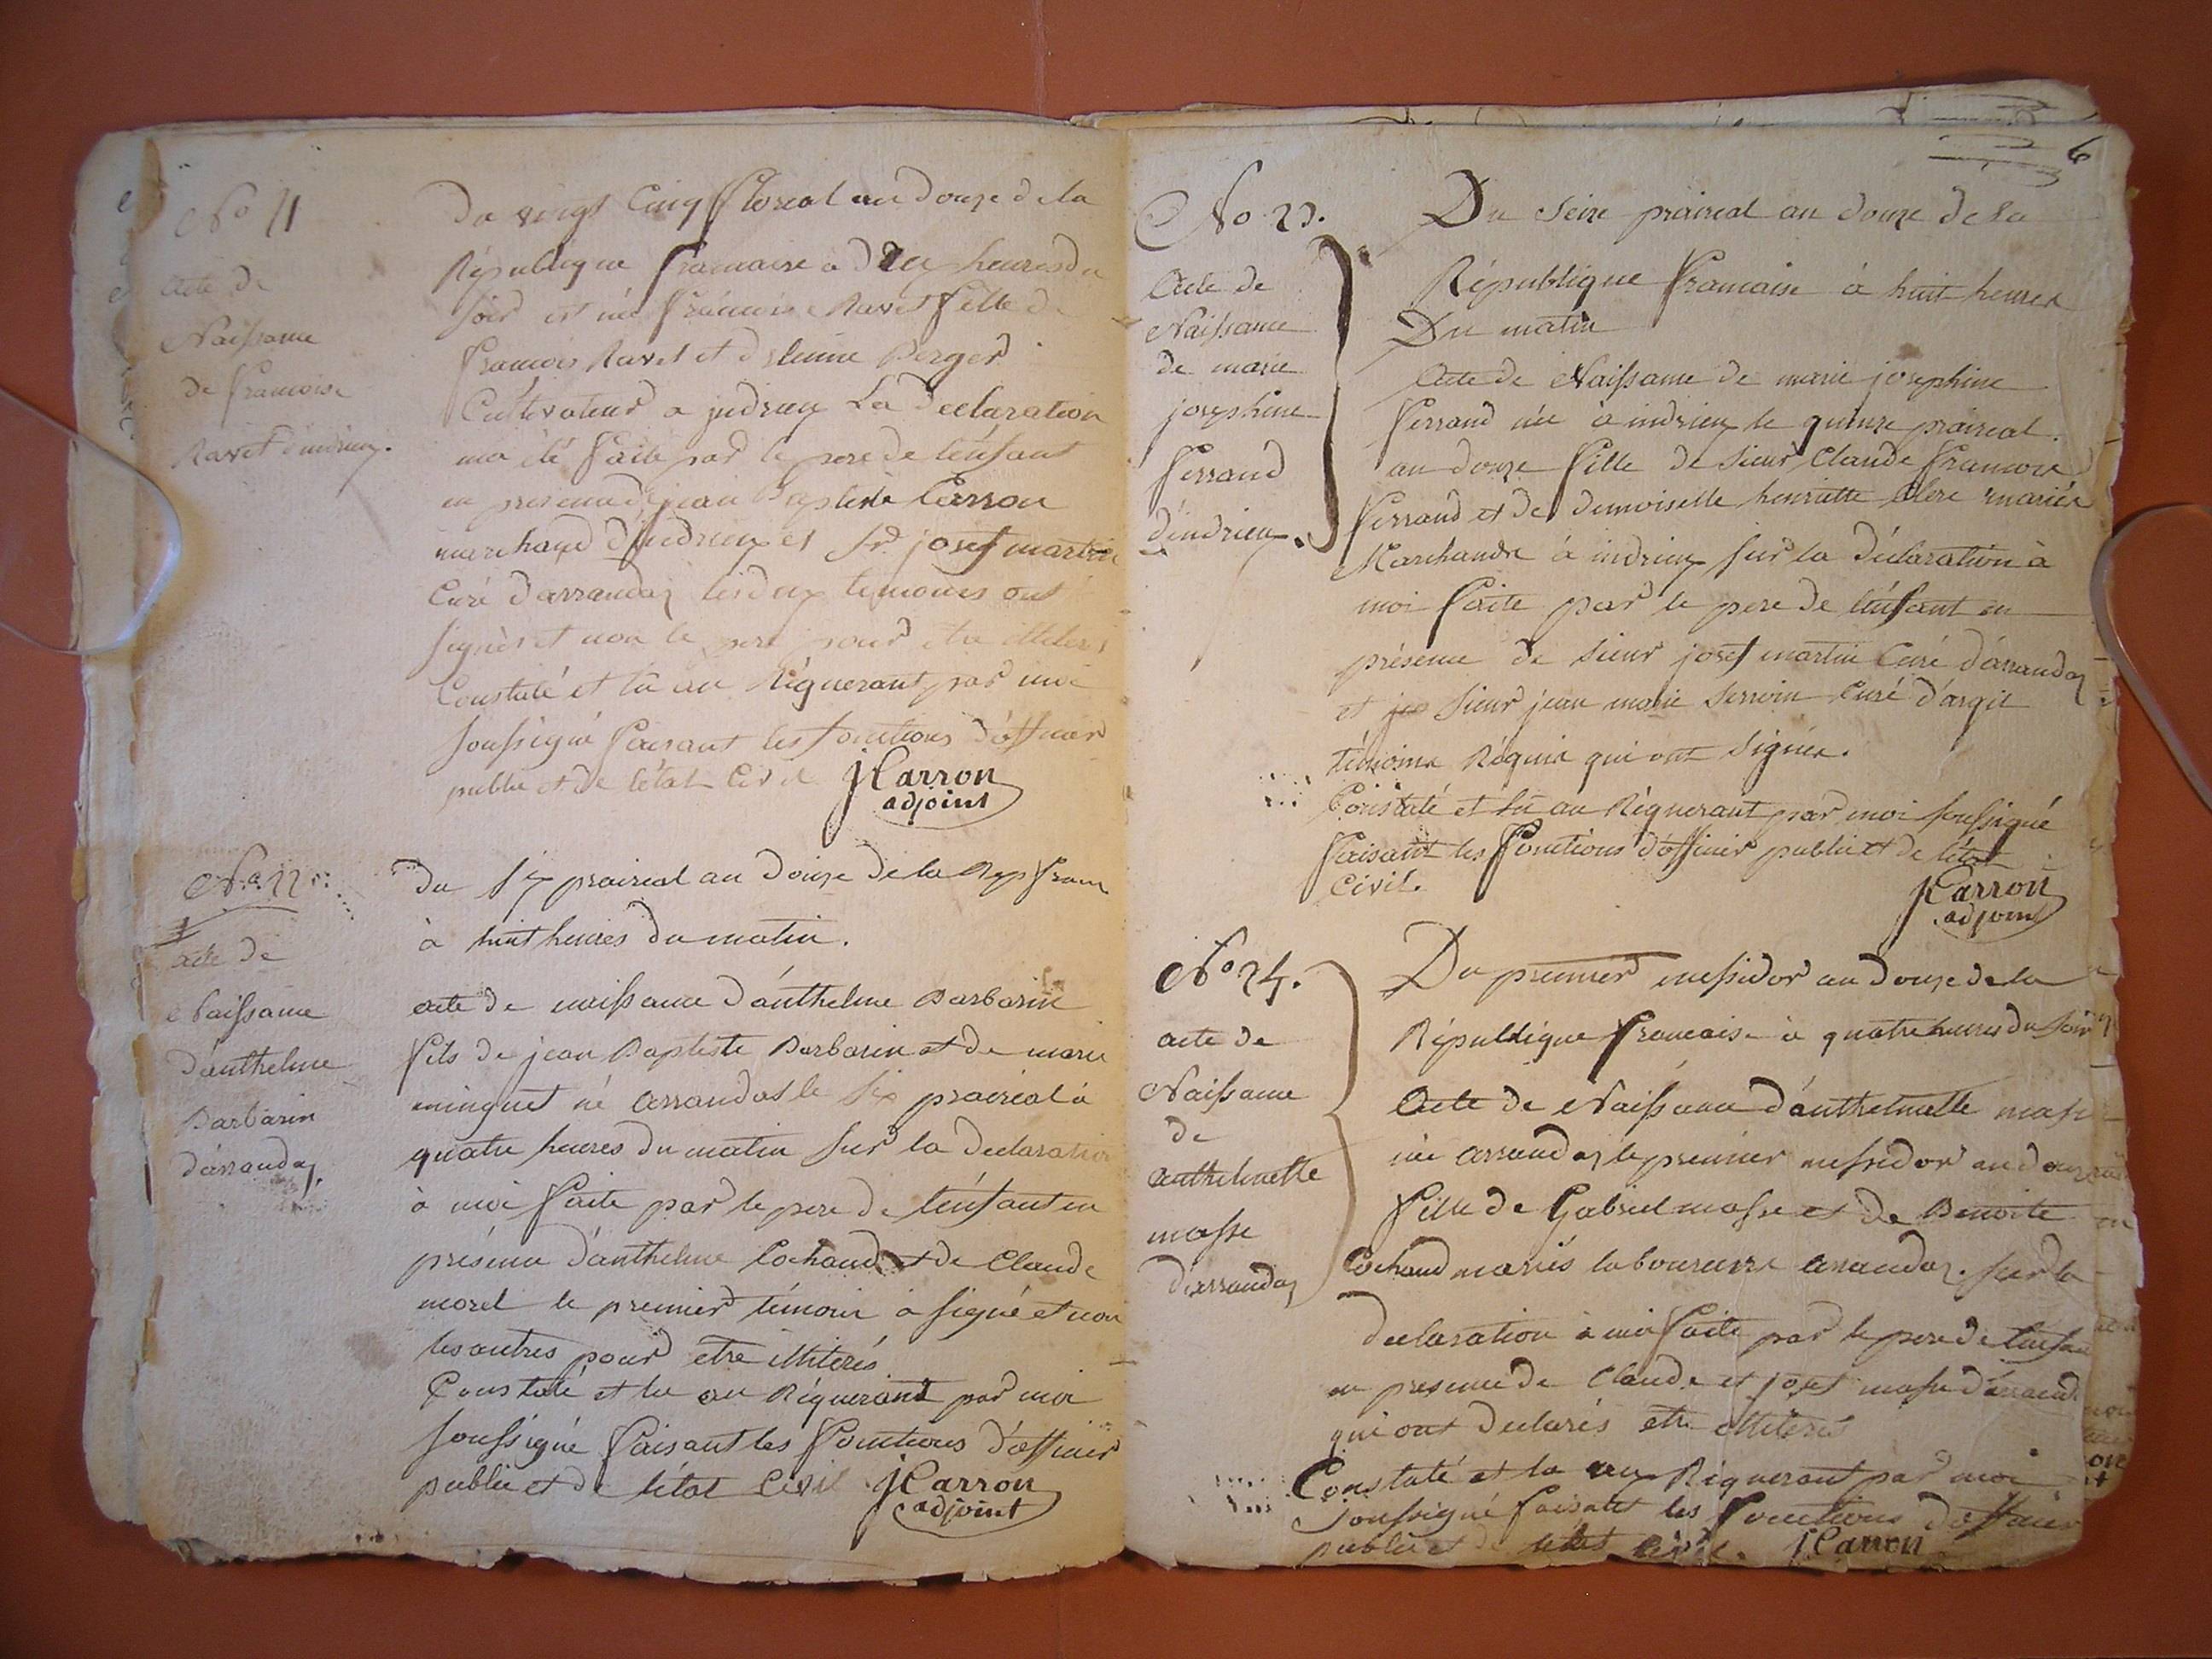 No 11
Acte de
Naissance
de francoise
Ravet d'indrieux.
Du vingt Cinq floreal an douze de la
République francaise a deux heures du
soir est née francoise Ravet fille de
francois Ravet et d'etiennne Berger
Cultivateur a jndrieux La declaration
m'a été faite par le pere de l'enfant
en presence de jean Baptiste Carron
marchand d'indrieux et sr. josef martin
Curé d'arrandaz les deux temoins ont
signés et non le pere pour etre illiteré
Constaté et lû au Réquerant par moi
soussigné faisant les fonctions d'officier
public et de l'état Civil JCarron
adjoint
No 22
acte de
Naissance
d'anthelme
Barbarin
d'arrandaz.
du six prairial an douze de la Rep franc
à huit heures du matin.
acte de naissance d'anthelme Barbarin
fils de jean Baptiste Barbarin et de marie
minguet né arrandas le six prairial à
quatre heures du matin sur la declaration
à moi faite par le pere de l'enfant en
présence d'anthelme Cochaud et de Claude
morel le premier témoin a signé et non
les autres pour etre illiterés
Constaté et lu au Réquerant par moi
soussigné faisant les fonctions d'officier
public et de l'état Civil JCarron
adjoint
6
No 23.
Acte de
Naissance
de marie
josephine
ferrand
d'indrieux.
Du Seize prairial an douze de la
République francaise à huit heures
Du matin
Acte de Naissance de marie josephine
ferrand née à indrieux le quinze prairial.
an douze fille de sieur Claude francois
ferrand et de demoiselle henriette mariés
Marchands à indrieux sur la déclaration à
moi faite par le pere de l'enfant en
présence de sieur josef martin Curé d'arrandaz
et sieur jean marie serroin Curé d'argit
témoins Réquis qui ont signés.
Constaté et lû au Réquerant par moi soussigné
faisant les fonctions d'officier public et de l'état
Civil.
JCarron
adjoint
No 24.
acte de
Naissance
de
anthelmette
masse
d'arrandaz
Du premier messidor an douze de la
République francaise à quatre heures du soir
Acte de Naissance d'anthelmette masse
née arrandaz le premier messidor an douze
fille de Gabriel masse et de Benoite
Cochaud mariés laboureurs arrandaz. sur la
declaration à moi faite par le pere de l'enfan
en presence de Claude et josef masse d'arrand
qui ont declarés etre illiterés
Constaté et lu au Réquerant par moi
soussigné faisant les fonctions d'officier
public et de l'état civil. JCarron